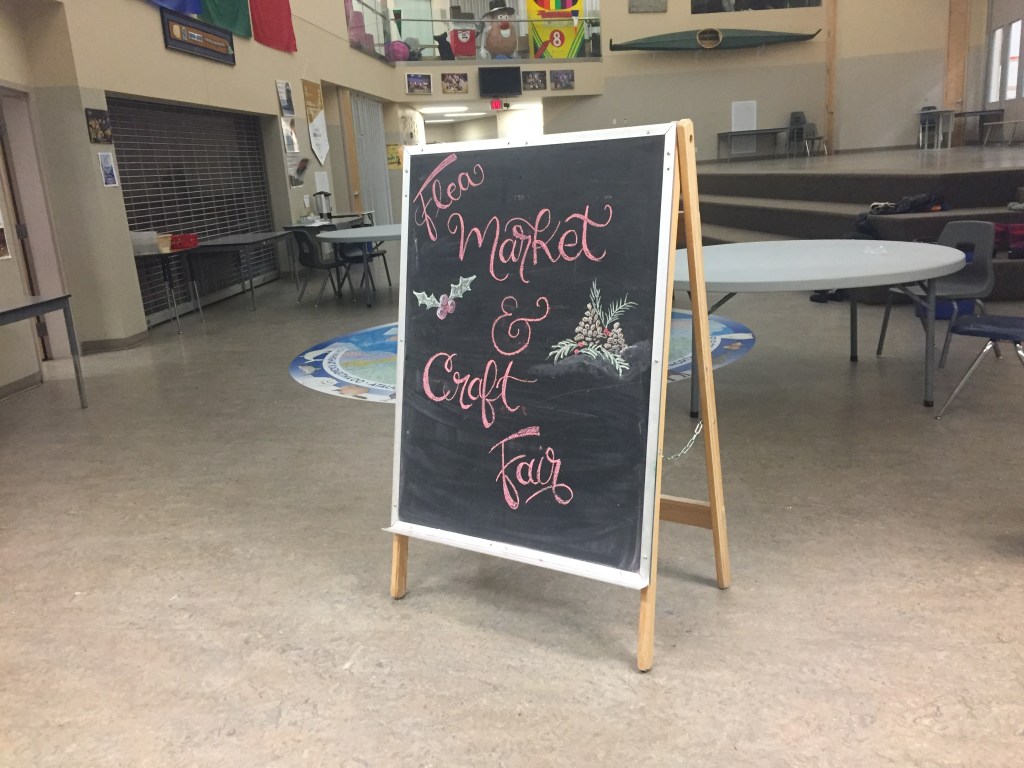 Flea
Market
&
Craft
Fair
8